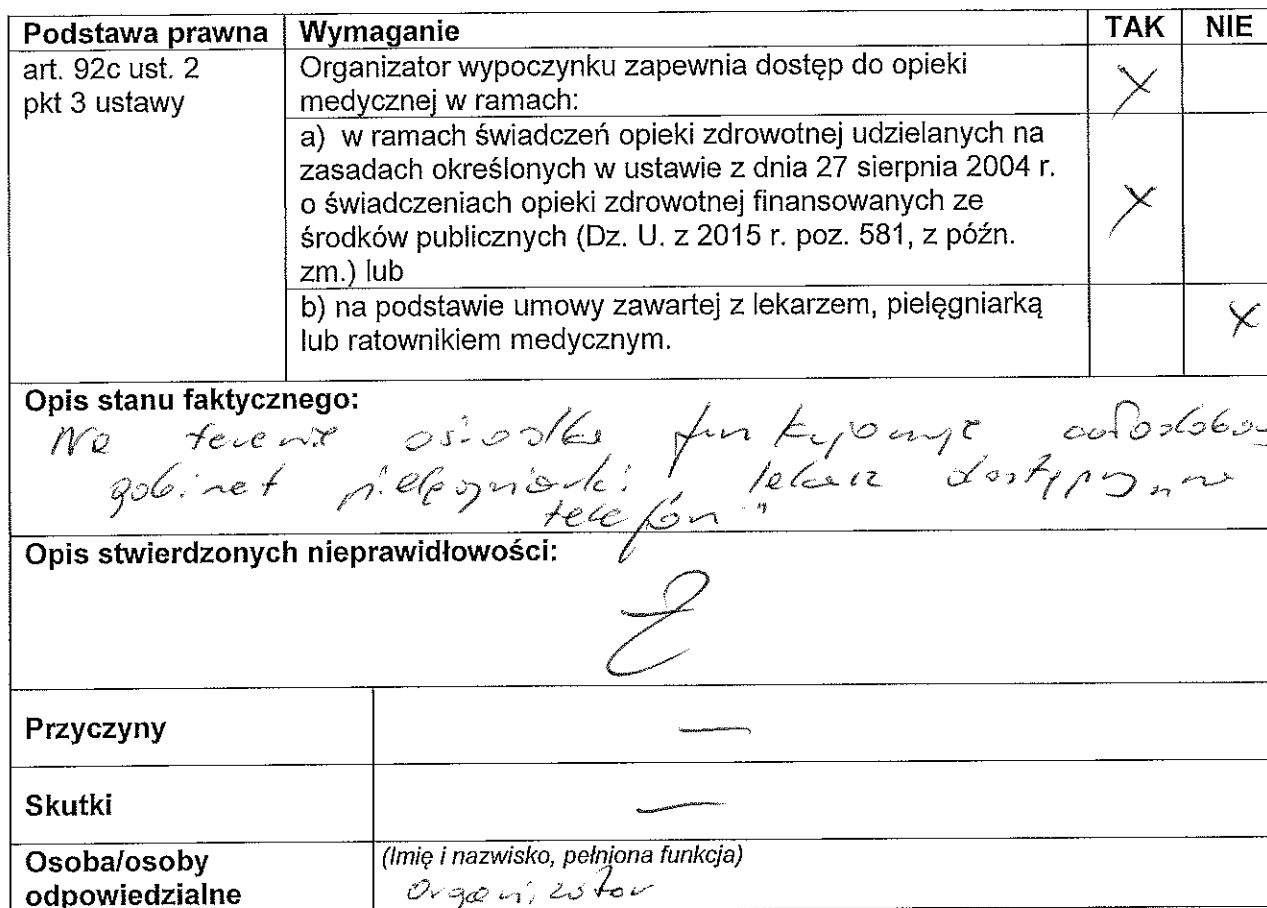 Podstawa prawna Wymaganie TAK NIE
art. 92c ust. 2
pkt 3 ustawy
Organizator wypoczynku zapewnia dostęp do opieki
medycznej w ramach:
X
a) w ramach świadczeń opieki zdrowotnej udzielanych na
zasadach określonych w ustawie z dnia 27 sierpnia 2004 r.
o świadczeniach opieki zdrowotnej finansowanych ze
środków publicznych (Dz. U. z 2015 r. poz. 581, z późn.
zm.) lub
X
b) na podstawie umowy zawartej z lekarzem, pielęgniarką
lub ratownikiem medycznym.
X
Opis stanu faktycznego:
Na terenie ośrodka funkcjonuje
gabinet pielęgniarki, lekarz dostępny na
telefon"
Opis stwierdzonych nieprawidłowości:
Przyczyny —
Skutki —
Osoba/osoby
odpowiedzialne
(Imię i nazwisko, pełniona funkcja)
Organizator